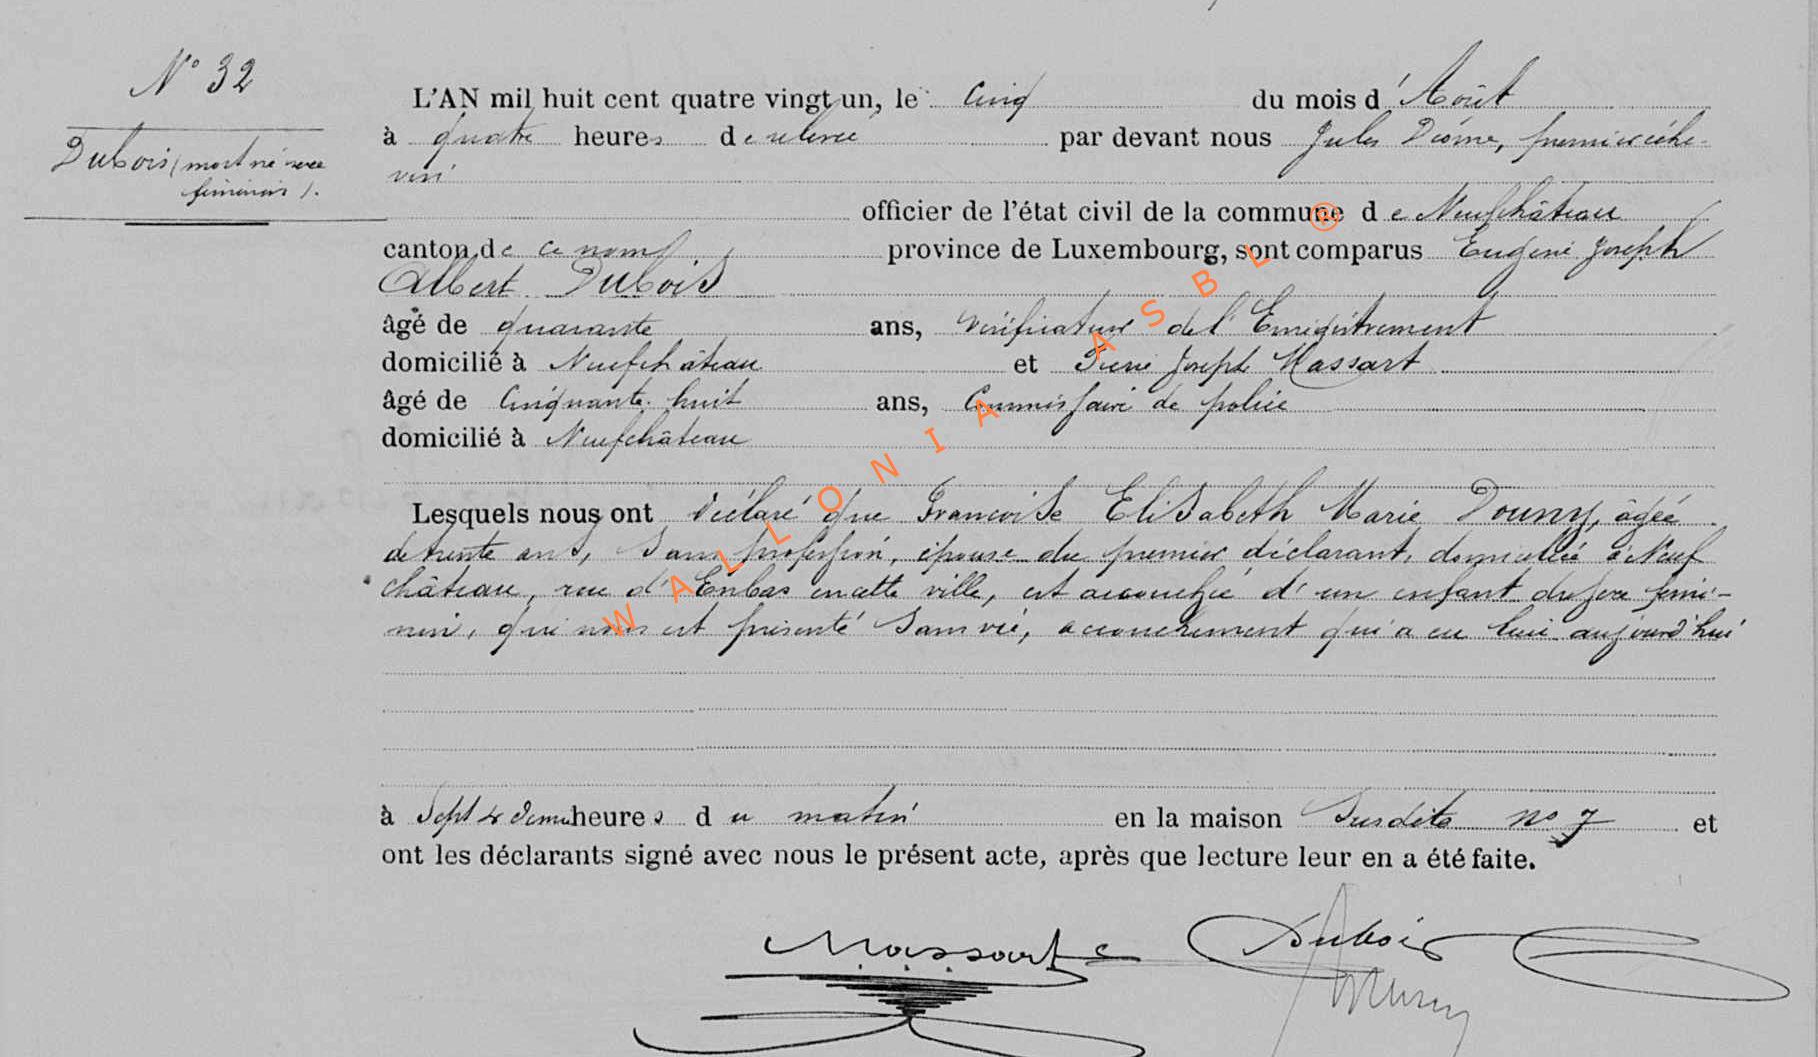 N° 32
Dubois (mort né sexe
féminin).
L'AN mil huit cent quatre vingt un, le Cinq du mois d'Août
à quatre heures de relevée par devant nous Jules Diôme, premier éche-
vin
officier de l'état civil de la commune de Neufchâteau
canton de ce nom province de Luxembourg, sont comparus Eugène Joseph
Albert Dubois
âgé de quarante ans, vérificateur de l'Enregistrement
domicilié à Neufchâteau et Pierre Joseph Massart
âgé de Cinquante huit ans, Commissaire de police
domicilié à Neufchâteau
Lesquels nous ont déclaré que Francoise Elisabeth Marie Douny, âgée
de trente ans, sans profession, épouse du premier déclarant, domiciliée à Neuf
château, rue d'Enbas en cette ville, est accouchée d'un enfant du sexe fémi-
nin, qui nous est présenté sans vie, accouchement qui a eu lieu aujourd'hui
à Sept & demi heures du matin en la maison Susdite no 7 et
ont les déclarants signé avec nous le présent acte, après que lecture leur en a été faite.
Massart Dubois
WALLONIA ASBL ®